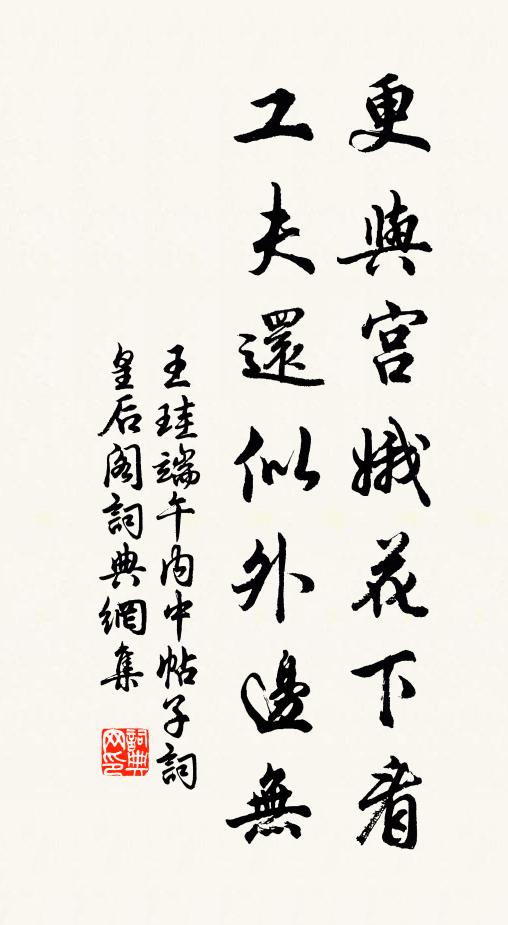 更與宮娥花下看
工夫還似外邊無
王珪端午内中帖子詞
皇后阁詞典網集
詞典网印